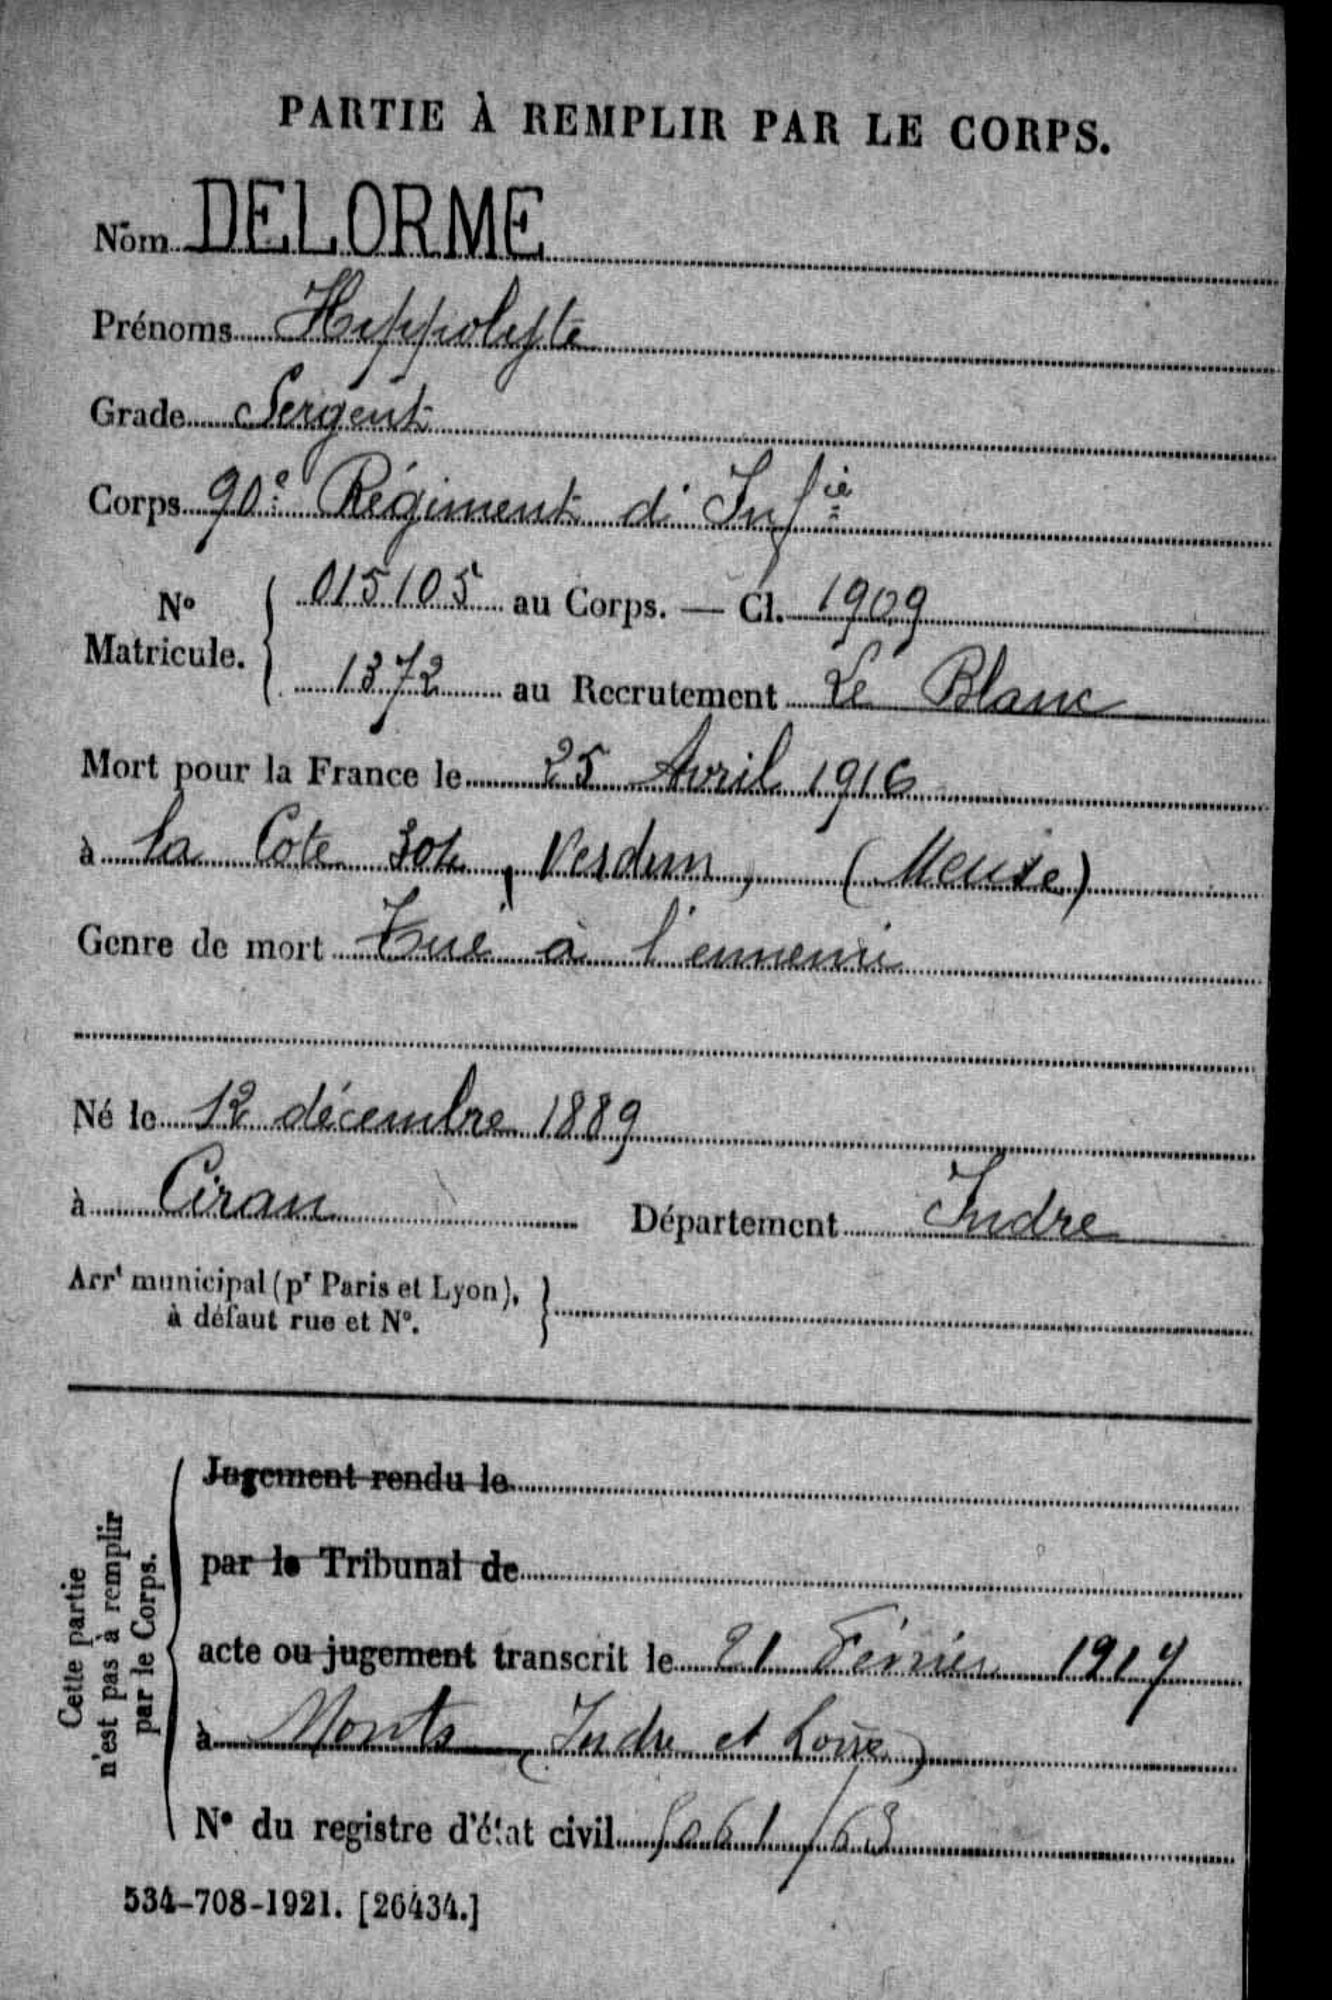 PARTIE À REMPLIR PAR LE CORPS.
Nom DELORME
Prénoms Hippolyte
Grade Sergent
Corps 90e Régiment d'Infie
No Matricule. { 015105 au Corps. — Cl. 1909
1372 au Recrutement Le Blanc
Mort pour la France le 25 Avril 1916
à la Cote 304, Verdun, (Meuse)
Genre de mort Tué à l'ennemi
Né le 12 décembre 1889
à Ciran Département Indre
Arrt municipal (pr Paris et Lyon), }
à défaut rue et No.
Cette partie
n'est pas à remplir
par le Corps.
Jugement rendu le
par le Tribunal de
acte ou jugement transcrit le 21 Février 1917
à Monts (Indre et Loire)
No du registre d'état civil 5061/63
534-708-1921. [26434.]